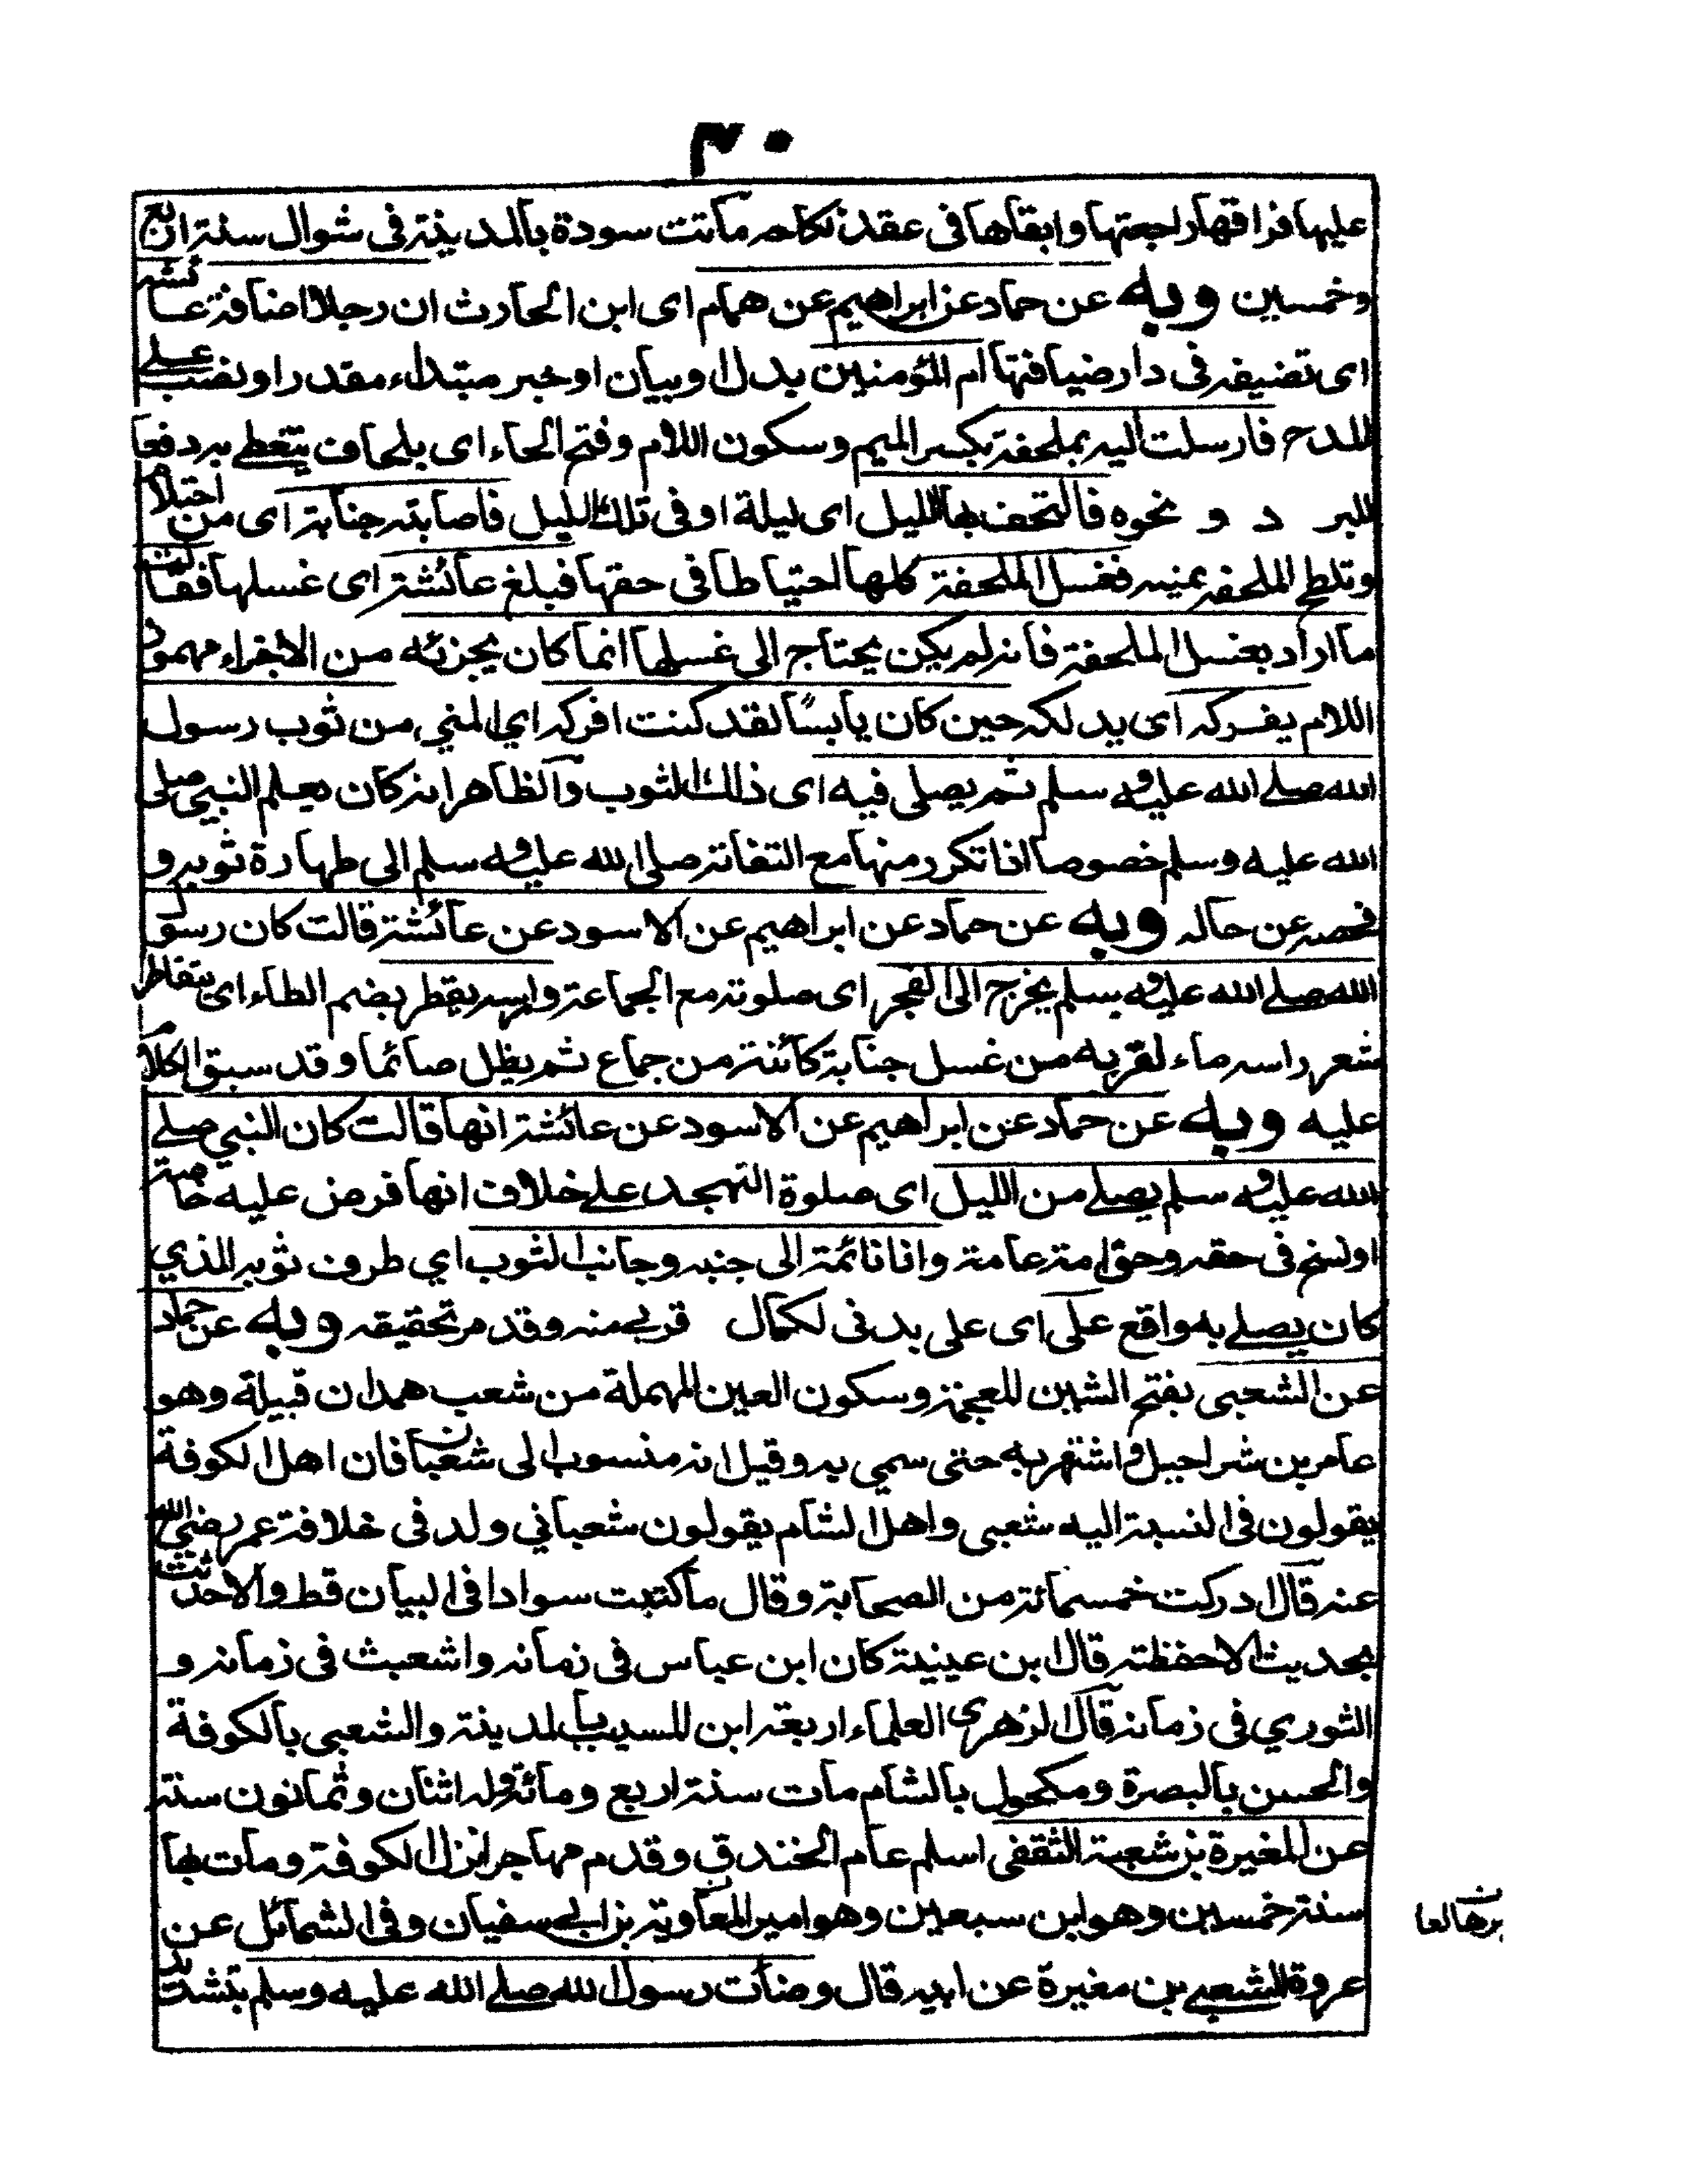 ٣٠
عليها فراقها راجعتها وابقاها فى عقد نكاحه ماتت سودة بالمدينة فى شوال سنة اربع
وخمسين وبه عن حماد عن ابراهيم عن همام اى ابن الحارث ان رجلا اضافة عائشة
اى تضيفه فى دار ضيافتها ام المؤمنين بدل او بيان او خبر مبتداء مقدر او نصب على
المدح فارسلت اليه بملحفة بكسر الميم وسكون اللام وفتح الحاء اى بلحاف يتغطى به دفعا
للبر د و نحوه فالتحف بها الليل اى ليلة او فى تلك الليل فاصابته جنابة اى من احتلام
وتلطخ الملحفه بمنيه فغسل الملحفة كلها احتياطا فى حقها فبلغ عائشة اى غسلها فقالت
ما اراد بغسل الملحفة فانه لم يكن يحتاج الى غسلها انما كان يجزئه من الاجزاء مهموز
اللام يفركه اى يدلكه حين كان يابسًا لقد كنت افركه اي المني من ثوب رسول
الله صلے الله عليه و سلم ثم يصلى فيه اى ذلك الثوب والظاهر انه كان يعلم النبي صلى
الله عليه وسلم خصوصا اذا تكرر منها مع التفاته صلى الله عليه و سلم الى طهارة ثوبه و
فحصه عن حاله وبه عن حماد عن ابراهيم عن الاسود عن عائشة قالت كان رسول
الله صلے الله عليه و سلم يخرج الى الفجر اى صلوته مع الجماعة وراسه يقطر بضم الطاء اى يتقاطر
شعر راسه ماء لقربه من غسل جنابة كائنة من جماع ثم يظل صائما وقد سبق الكلام
عليه وبه عن حماد عن ابراهيم عن الاسود عن عائشة انها قالت كان النبي صلے
الله عليه و سلم يصلے من الليل اى صلوة التهجد علے خلاف انها فرض عليه خاصة
او لسنخ فى حقه وحق امته عامة وانا نائمة الى جنبه وجانب الثوب اي طرف ثوبه الذي
كان يصلے به واقع علي اى على بدنى لكمال قربے منه وقد مر تحقيقه وبه عن حماد
عن الشعبى بفتح الشين المعجمة وسكون العين المهملة من شعب همدان قبيلة وهو
عامر بن شراحيل واشتهر به حتى سمي به وقيل انه منسوب الى شعبان فان اهل الكوفة
يقولون فى النسبة اليه شعبى واهل الشام يقولون شعباني ولد فى خلافة عمر رضى الله
عنه قال ادركت خمسمائة من الصحابة وقال ما كتبت سوادا فى البيان قط والاحدثت
بحديث الاحفظته قال ابن عيينة كان ابن عباس فى زمانه واشعبث فى زمانه و
الثوري فى زمانه قال الزهرى العلماء اربعة ابن المسيب بالمدينة والشعبى بالكوفة
والحسن بالبصرة ومكحول بالشام مات سنة اربع ومائة وله اثنان وثمانون سنة
عن المغيرة بن شعبة الثقفى اسلم عام الخندق وقدم مهاجرا نزل الكوفة ومات بها
سنة خمسين وهو ابن سبعين وهو امير المعاوية بن ابے سفيان وفى الشمائل عن
عروة الشعبے بن مغيرة عن ابيه قال وضأت رسول الله صلے الله عليه وسلم بتشديد